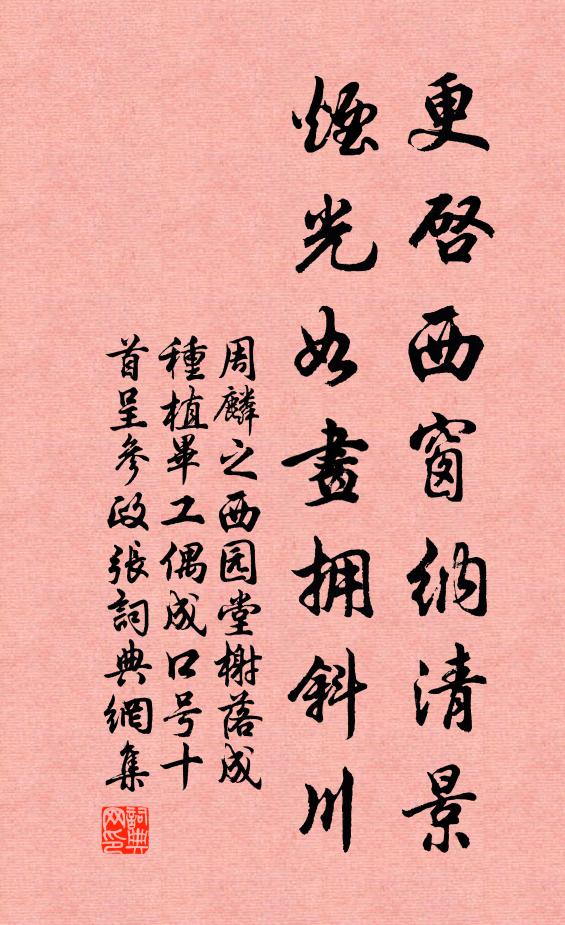 更啓西窗納清景
煙光如畫拥斜川
周麟之西园堂榭落成
種植畢工偶成口号十
首呈参政張詞典網集
詞典
网印